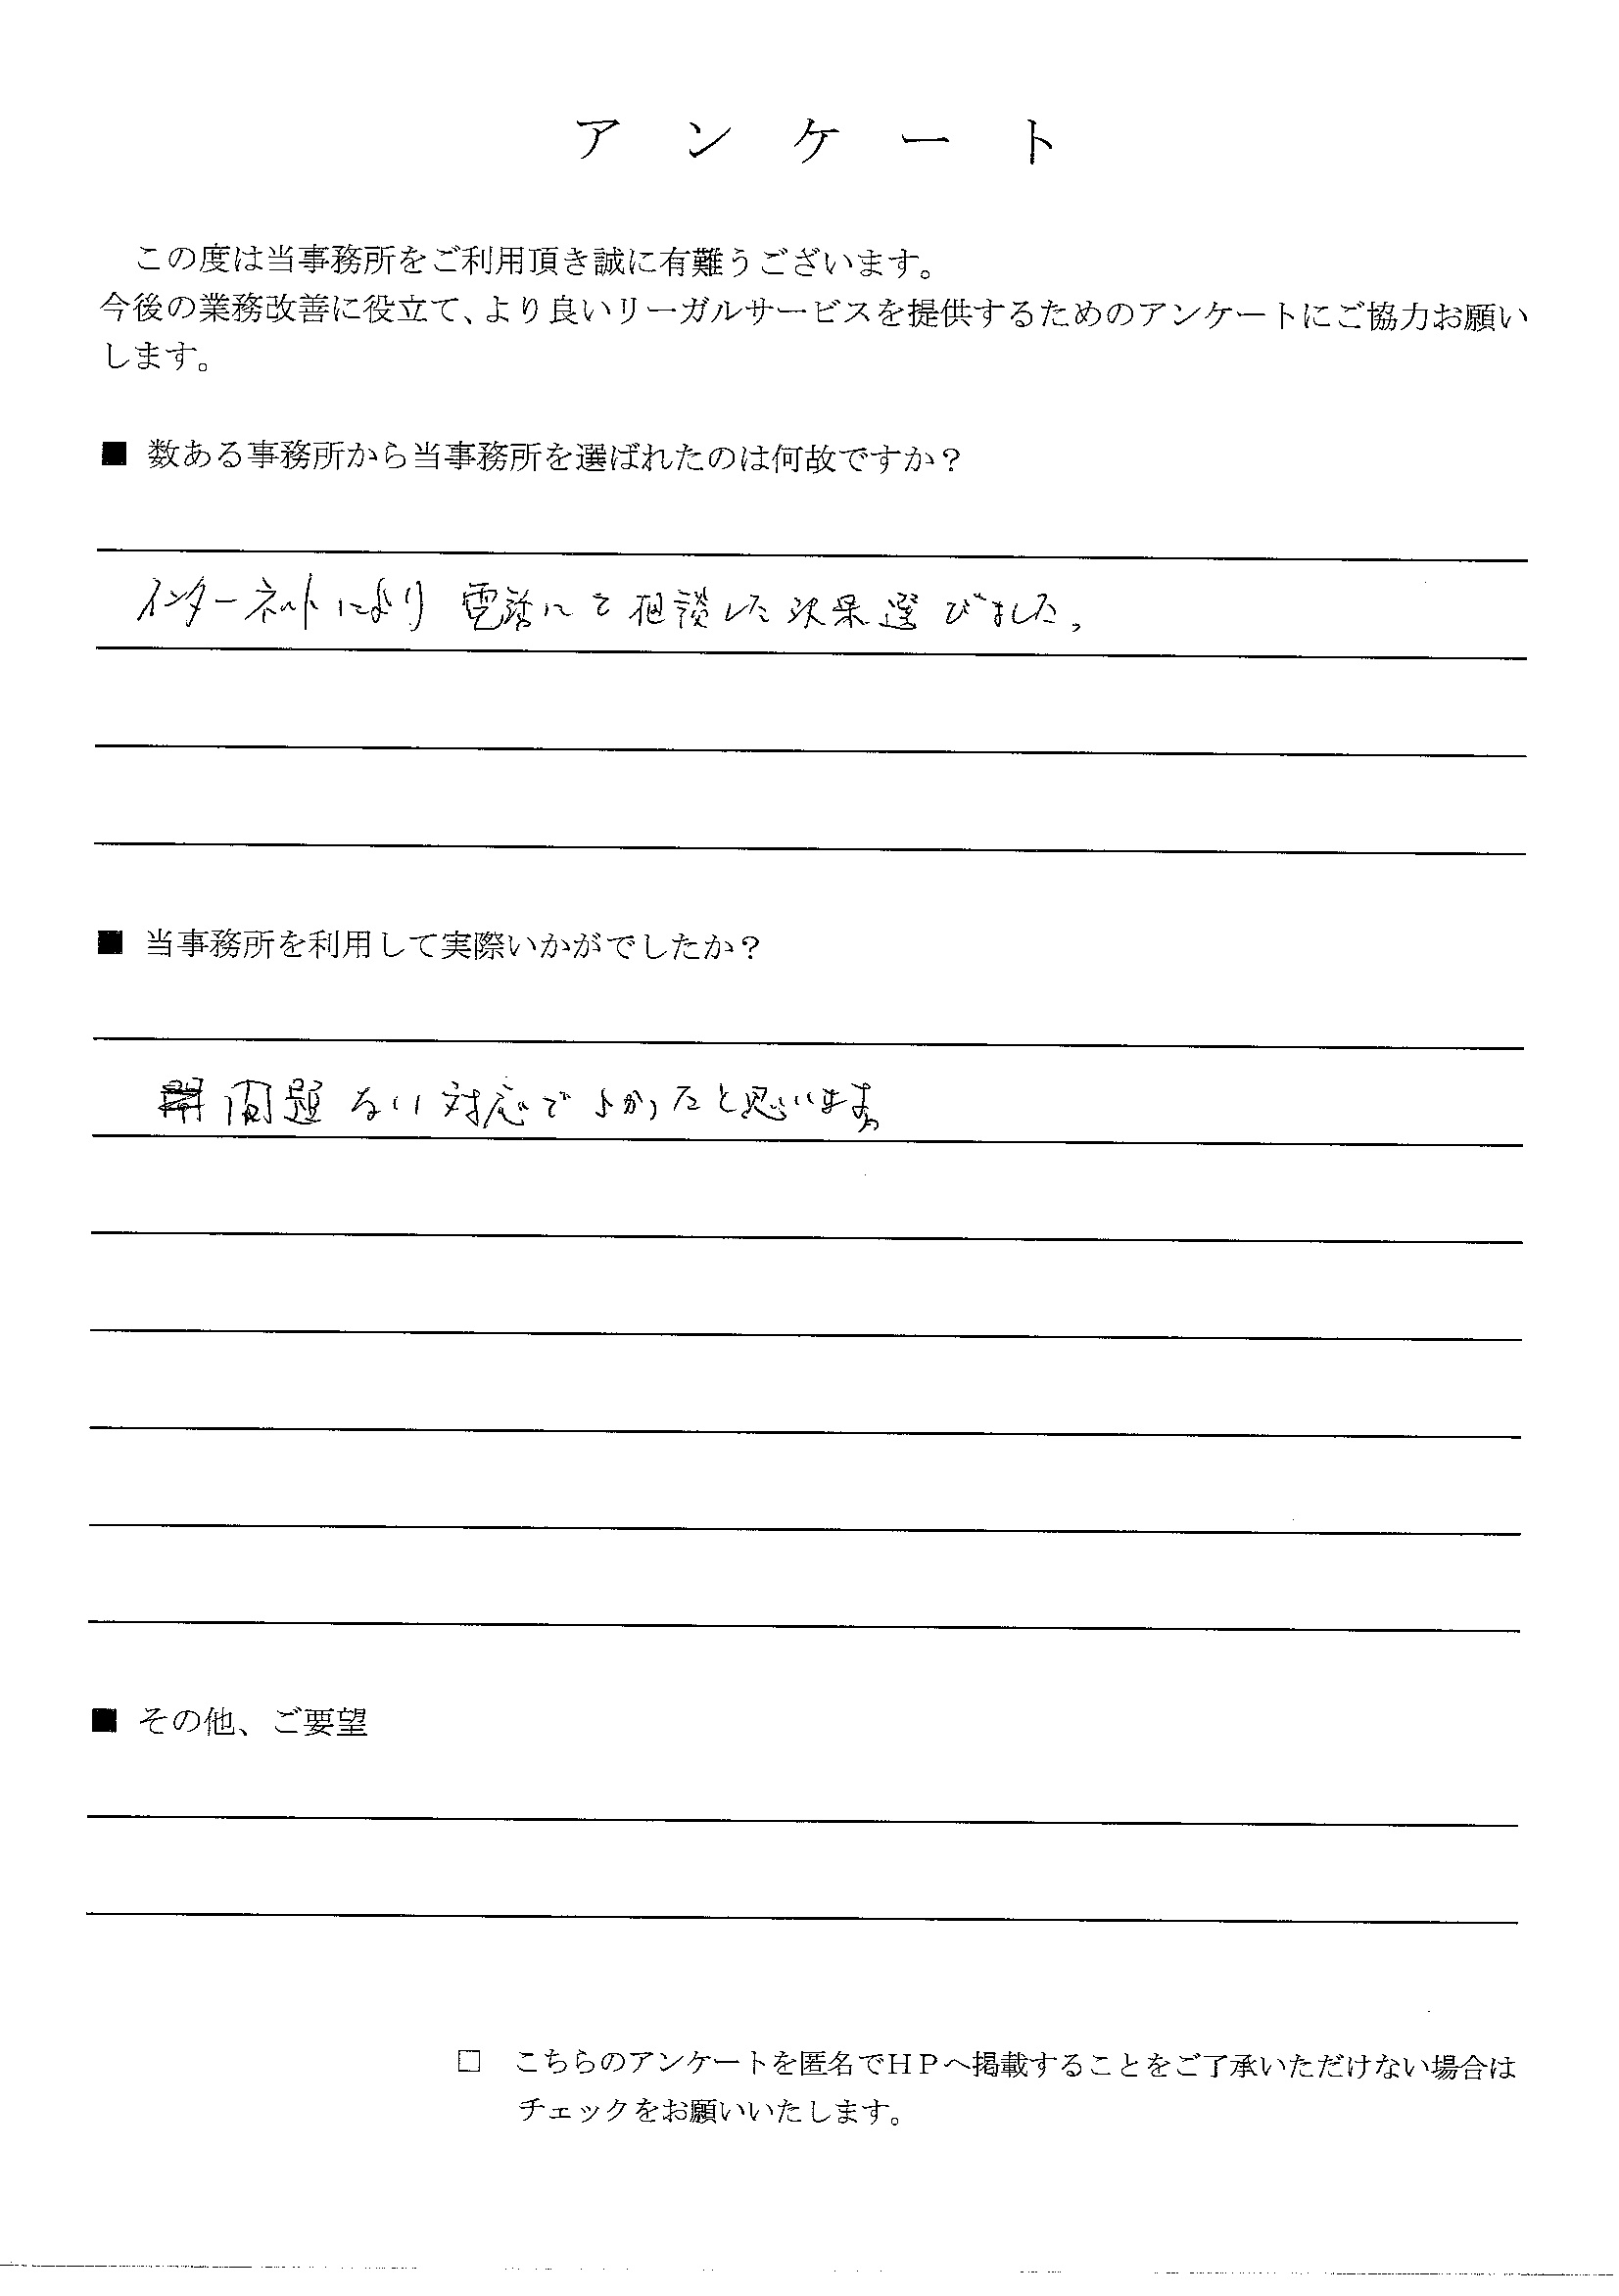 アンケート
この度は当事務所をご利用頂き誠に有難うございます。
今後の業務改善に役立て、より良いリーガルサービスを提供するためのアンケートにご協力お願い
します。
■ 数ある事務所から当事務所を選ばれたのは何故ですか？
インターネットにより 電話にて相談した結果選びました。
■ 当事務所を利用して実際いかがでしたか？
問題ない対応でよかったと思います。
■ その他、ご要望
□ こちらのアンケートを匿名でＨＰへ掲載することをご了承いただけない場合は
チェックをお願いいたします。